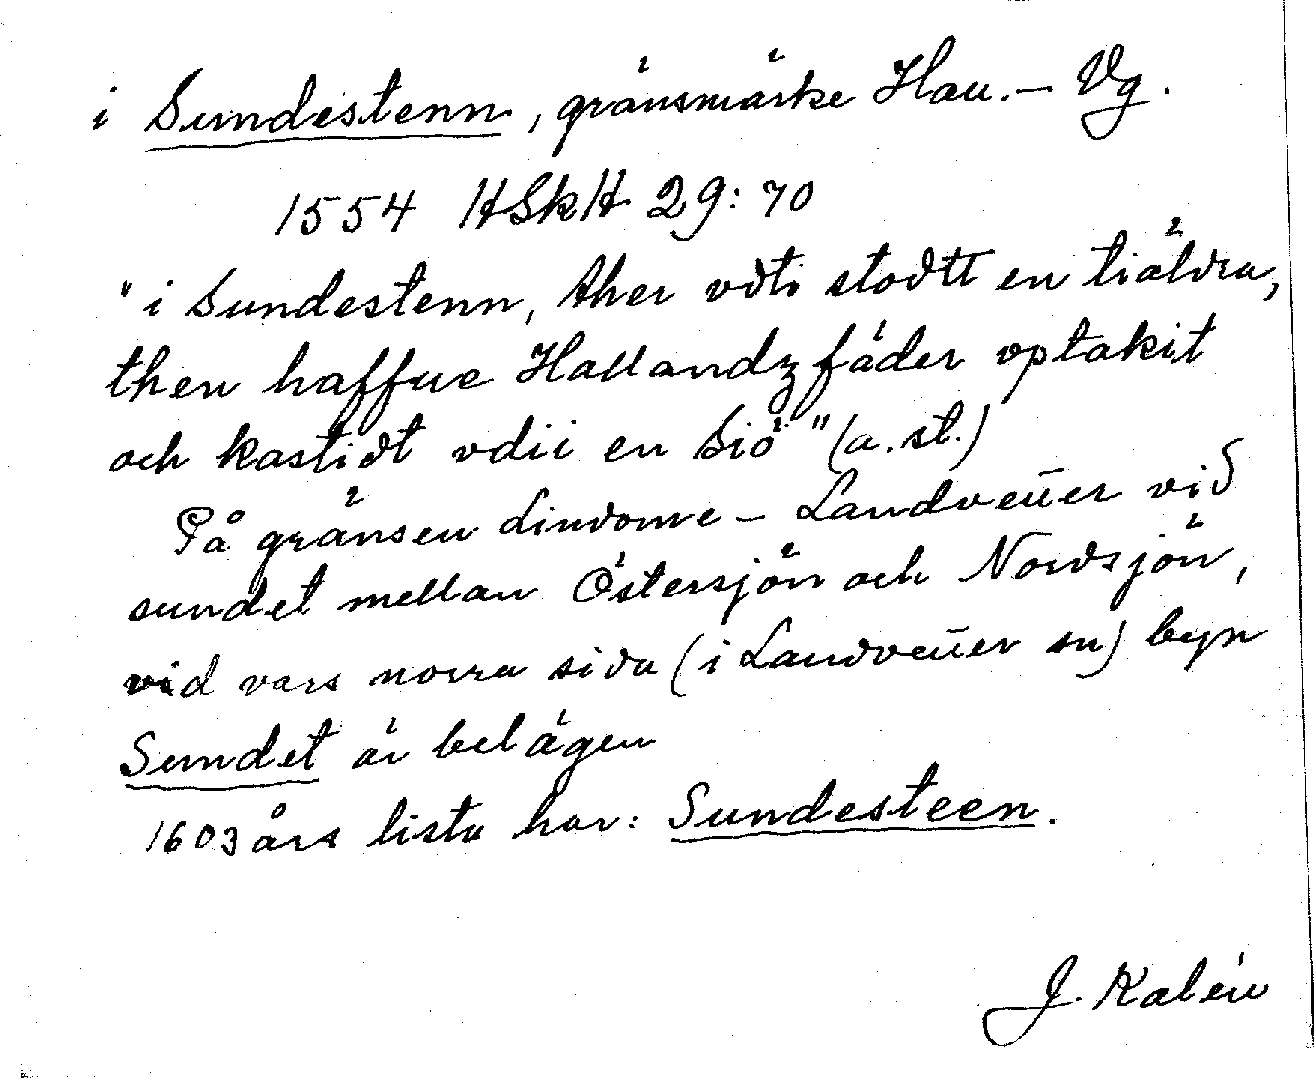 i Sundestenn, gränsmärke Hall.– Vg.
1554 HSkH 29:70
"i Sundestenn, ther vdti stodtt en tiäldra,
then haffue Hallandzfäder optakit
och kastidt vdii en Siö" (a.st.)
På gränsen Lindome – Landvetter vid
sundet mellan Östersjön och Nordsjön,
vid vars norra sida (i Landvetter sn) byn
Sundet är belägen
1603 års lista har: Sundesteen.
J. Kalén